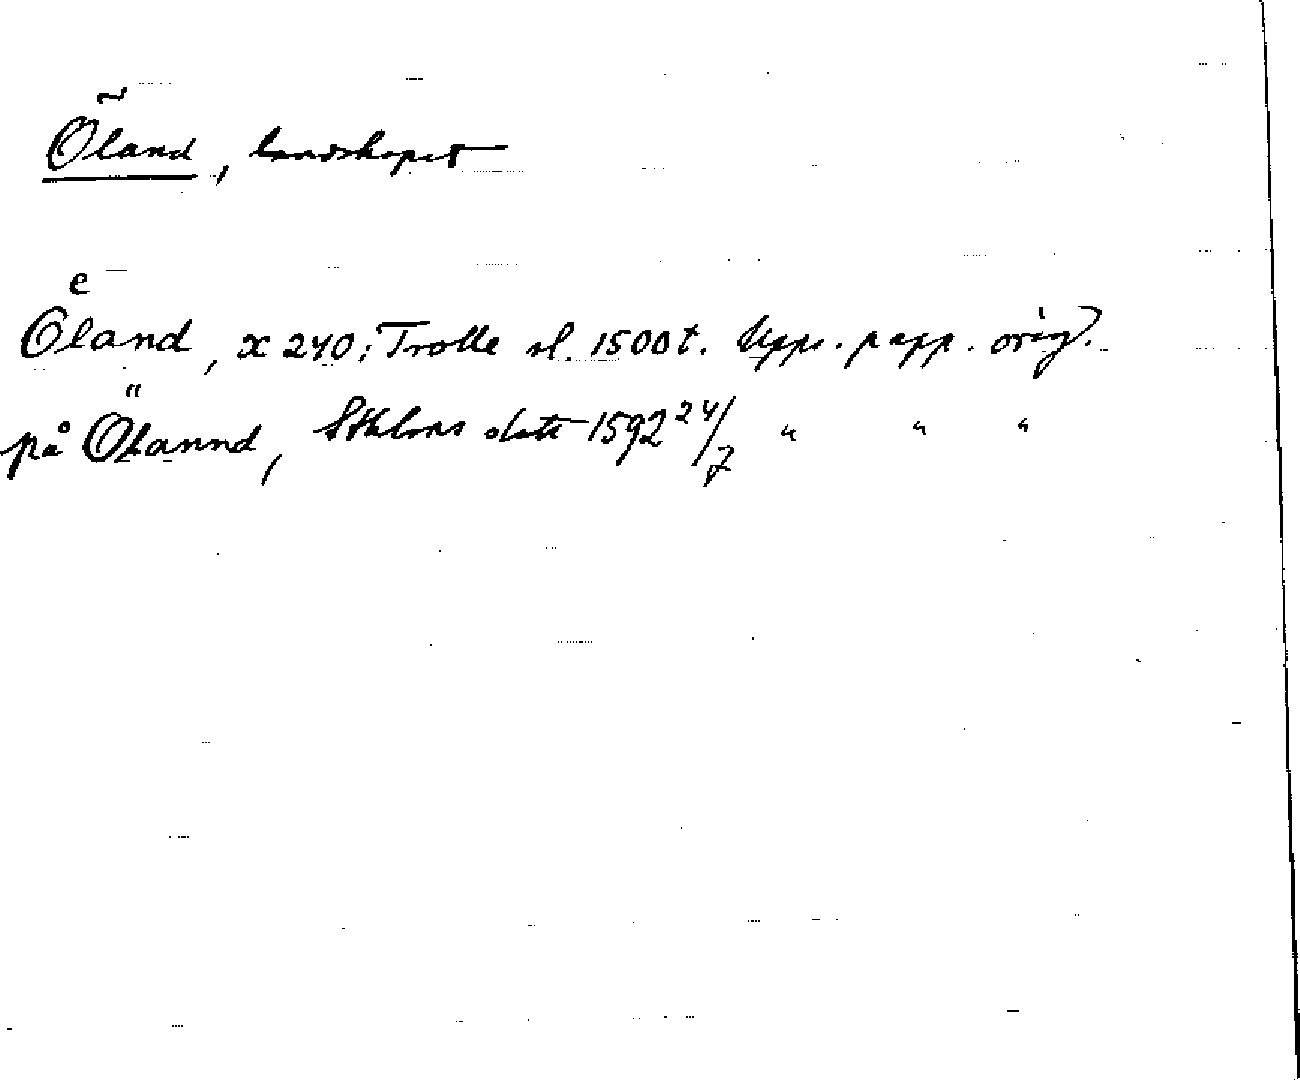 Öland, landskapet
Oͤland, x 240: Trolle sl. 1500 t. Upps. papp. orig.
på Ölannd, Sthlms slott 1592 24/7 " " "